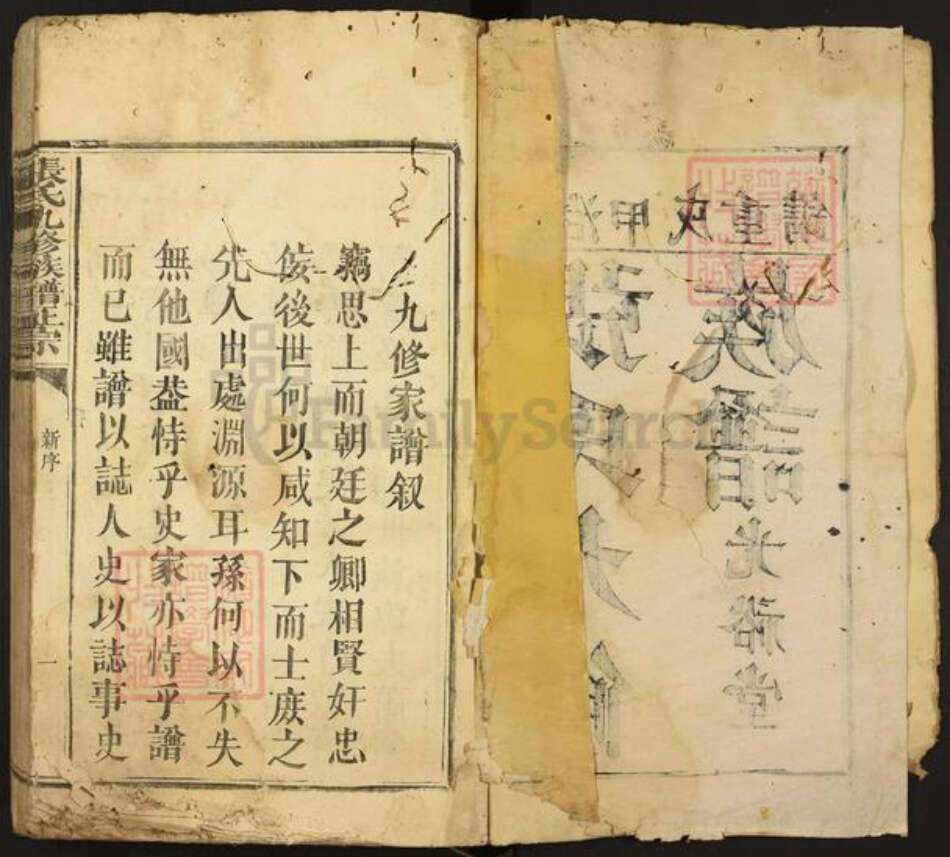 重鐫
甲戌
族譜
光裕堂
張氏九修
九修家譜叙
竊思上而朝廷之卿相賢奸忠
佞後世何以咸知下而士庻之
先人出處淵源耳孫何以不失
無他國葢恃乎史家亦恃乎譜
而已雖譜以誌人史以誌事史
張氏九修族譜正宗
新序
一
FamilySearch